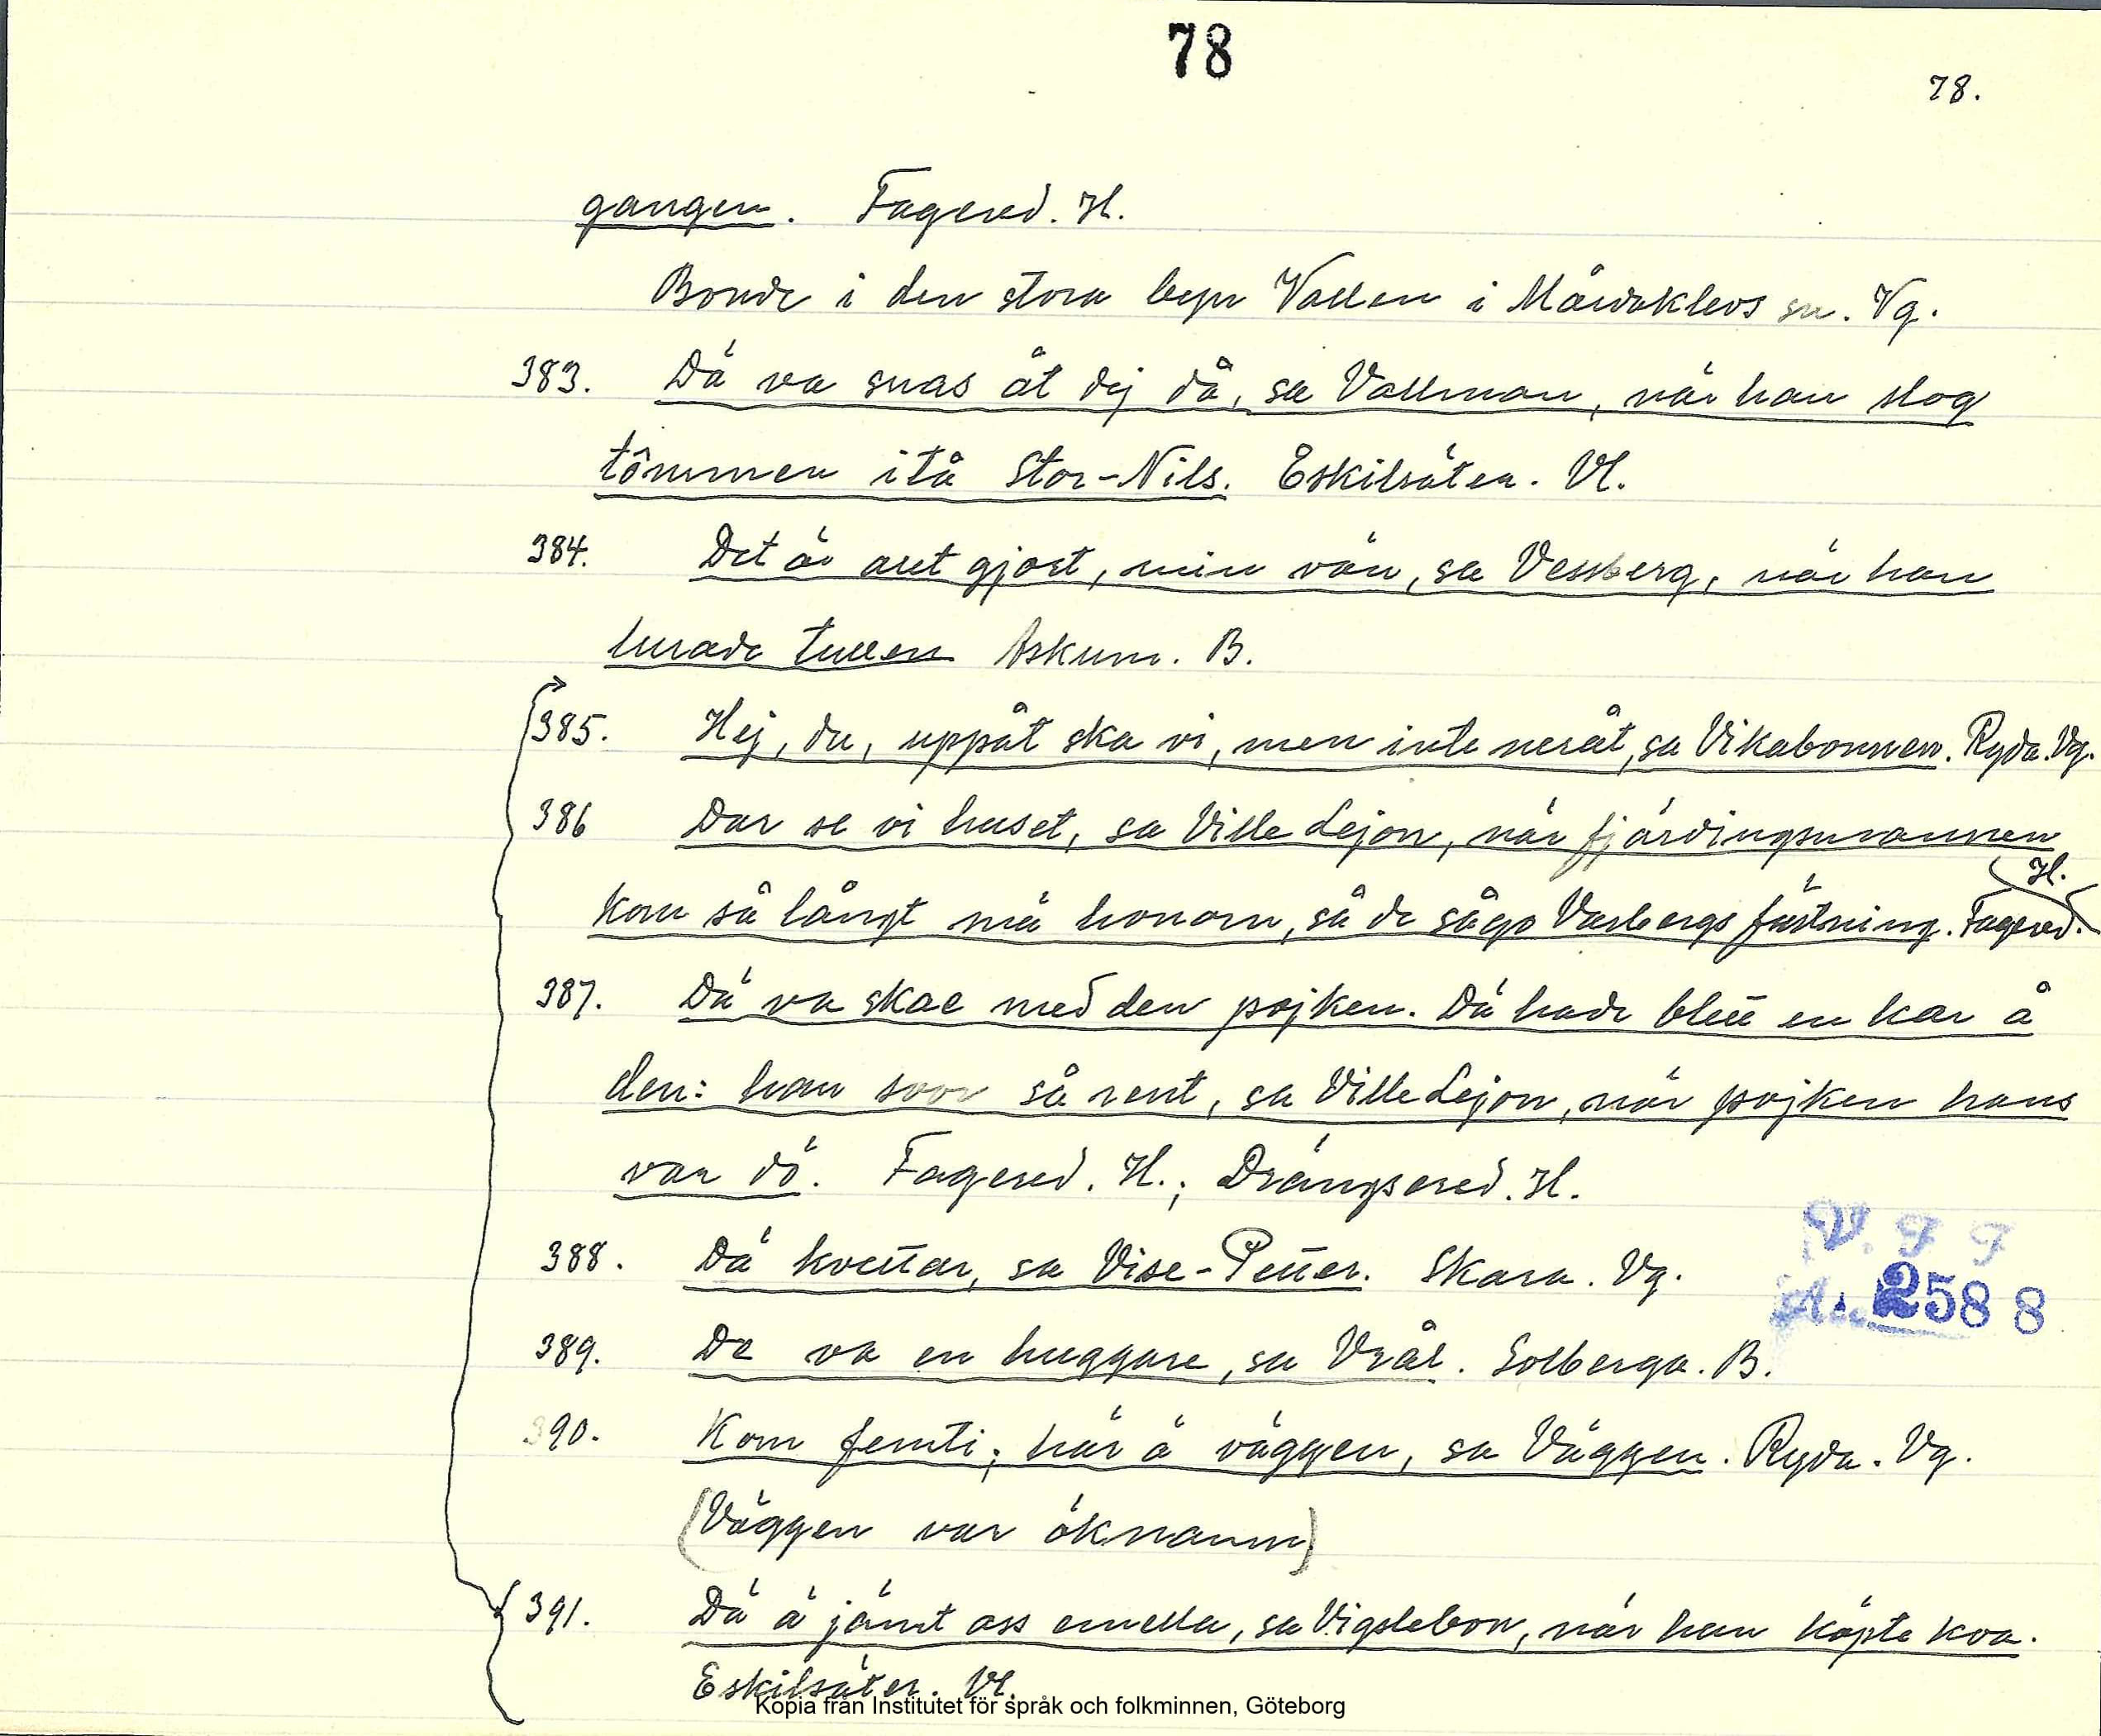 78
78.
gangen. Fagered. H.
Bonde i den stora byn Vallen i Mårdaklevs sn. Vg.
383. Dä va snas åt dej då, sa Vallman, när han slog
tömmen itå Stor-Nils. Eskilsäter. Vl.
384. Det är art gjort, min vän, sa Vessberg, när han
lurade tullen Askum. B.
385. Hej, du, uppåt ska vi, men inte neråt, sa Vikabonnen. Ryda. Vg.
386 Dar se vi huset, sa Ville Lejon, när fjärdingsmannen
kom så långt mä honom, så de sågo Varbergs fästning. Fagered. H.
387. Dä va skae med den pojken. Dä hade blett en kar å
den: han svor så rent, sa Ville Lejon, när pojken hans
var dö. Fagered. H.; Drängsered. H.
388. Dä kvettar, sa Vise-Petter. Skara. Vg.
V. F F
A. 2588
389. De va en huggare, sa Vrål. Solberga. B.
390. Kom femti; här ä väggen, sa Väggen. Ryda. Vg.
(Väggen var öknamn)
391. Dä ä jämt oss emella, sa Vigslebon, när han köpte koa.
Eskilsäter. Vl.
Kopia från Institutet för språk och folkminnen, Göteborg